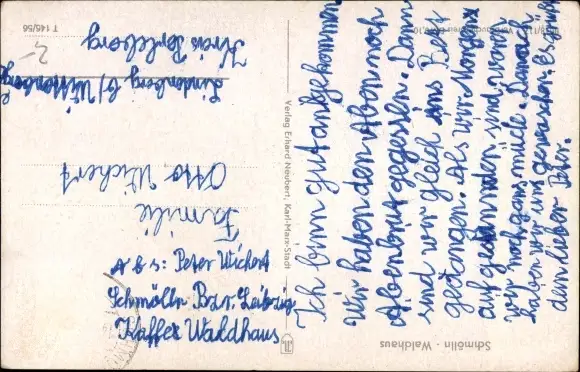 Ich binn gut antgekommen
Wir haben den Aben noch
Abenbrot gegessen. Dann
sind wir gleich ins Bett
gegangen. Als wir Morgens
aufgestanden sind, waren
wir noch ganz müde. Danach
haben wir uns gewaschen. Es grüßt
dein lieber Peter.
Familie
Otto Wichert
Lindenberg b/ Wittenberg
Kreis Perleberg
Abs: Peter Wichert
Schmölln Bzr. Leibzig
Kaffee Waldhaus
Schmölln - Waldhaus
Verlag Erhard Neubert, Karl-Marx-Stadt
T 145/56
2,-